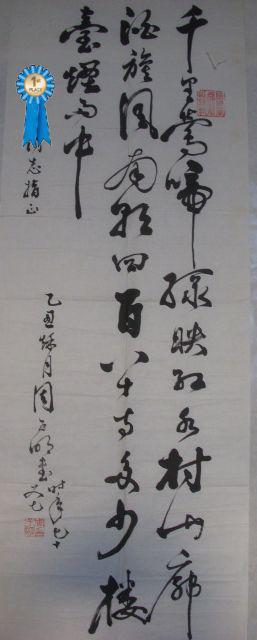 千里鶯啼綠映紅水村山廓
酒旗風南朝四百八十寺多少樓
臺煙雨中
1st
PLACE
志指正
乙丑 月周 明書時年七十